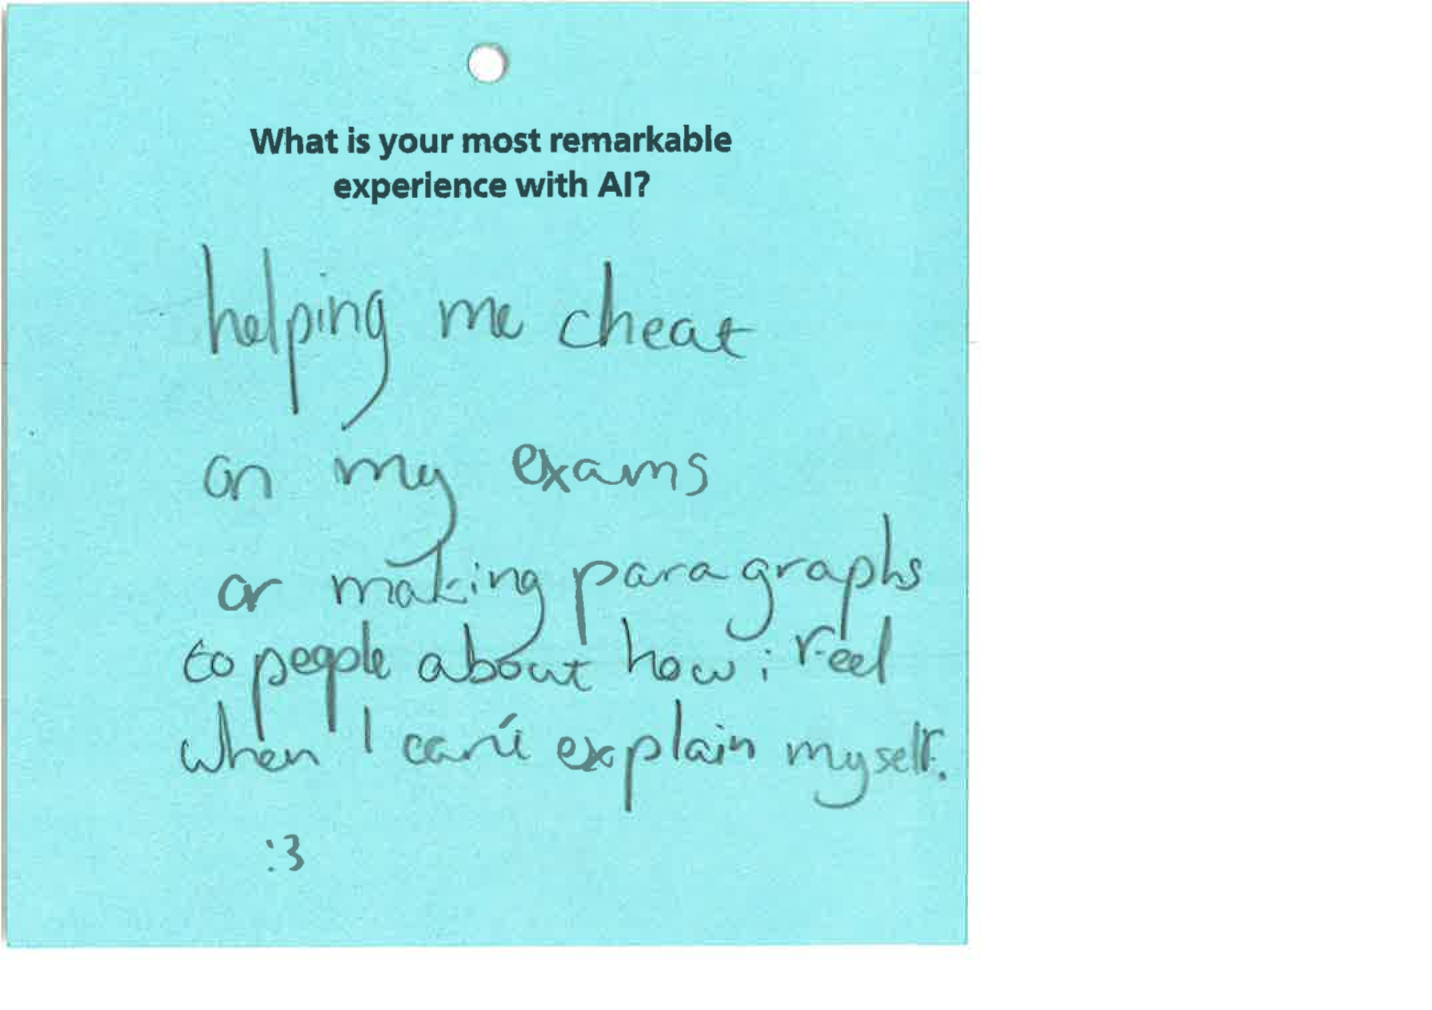 What is your most remarkable
experience with AI?
helping me cheat
on my exams
or making paragraphs
to people about how i feel
when I can't explain myself.
:3